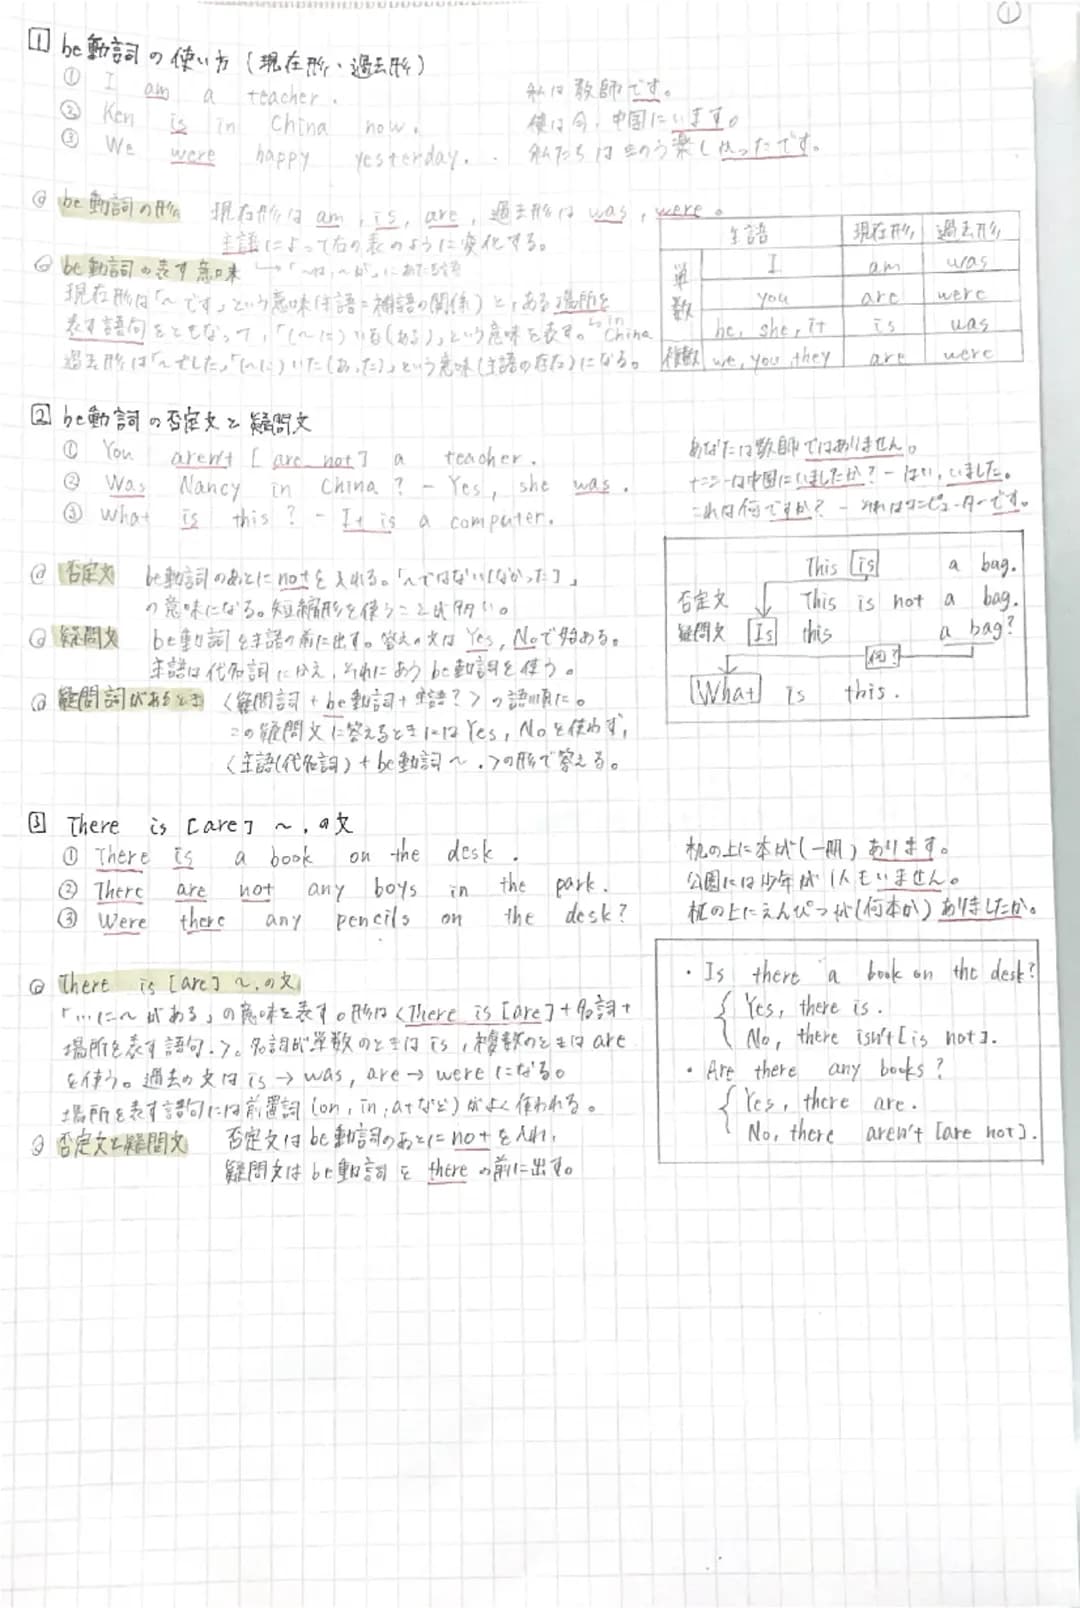 ①
1 be動詞の使い方(現在形・過去形)
① I am a teacher. 私は教師です。
② Ken is in China now. 健は今、中国にいます。
③ We were happy yesterday. 私たちはきのう楽しかったです。
@ be動詞の形 現在形は am, is, are, 過去形は was, were。
主語によって右の表のように変化する。
主語 現在形 過去形
単数 I am was
you are were
he, she, it is was
複数 we, you, they are were
@ be動詞の表す意味 →「~は、~が」にあたる語
現在形は「~です」という意味(主語=補語の関係)と、ある場所を
表す語句をともなって、「(~に)いる(ある)」という意味を表す。 in China
過去形は「~でした」「(~に)いた(あった)」という意味(主語の存在)になる。
2 be動詞の否定文と疑問文
① You aren't [are not] a teacher. あなたは教師ではありません。
② Was Nancy in China? - Yes, she was. ナンシーは中国にいましたか? - はい、いました。
③ What is this? - It is a computer. これは何ですか? - それはコンピューターです。
@ 否定文 be動詞のあとに not を入れる。「~ではない[なかった]」
の意味になる。短縮形を使うことが多い。
@ 疑問文 be動詞を主語の前に出す。答えの文は Yes, No で始める。
主語は代名詞にかえ、それにあう be動詞を使う。
@ 疑問詞があるとき 〈疑問詞+be動詞+主語?〉の語順に。
この疑問文に答えるときには Yes, No を使わず、
〈主語(代名詞)+be動詞~.〉の形で答える。
This is a bag.
否定文 This is not a bag.
疑問文 Is this a bag?
何?
What is this.
3 There is [are] ~. の文
① There is a book on the desk. 机の上に本が(一冊)あります。
② There are not any boys in the park. 公園には少年が1人もいません。
③ Were there any pencils on the desk? 机の上にえんぴつが(何本か)ありましたか。
@ There is [are] ~. の文
「…に~がある」の意味を表す。形は〈There is [are]+名詞+
場所を表す語句.〉。名詞が単数のときは is, 複数のときは are
を使う。過去の文は is → was, are → were になる。
場所を表す語句には前置詞(on, in, at など)がよく使われる。
@ 否定文と疑問文 否定文は be動詞のあとに not を入れ、
疑問文は be動詞を there の前に出す。
・Is there a book on the desk?
Yes, there is.
No, there isn't [is not].
・Are there any books?
Yes, there are.
No, there aren't [are not].